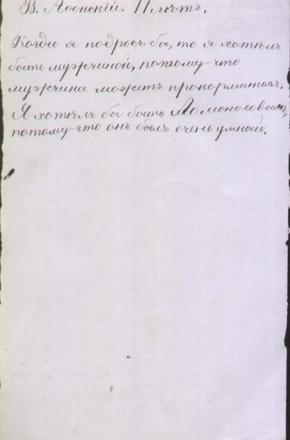 В. Лонскій. 11 лѣтъ.
Когда я подросъ бы, то я хотѣлъ
быть мужчиной, потому-что
мужчина можетъ прокормиться.
Я хотѣлъ бы быть Ломоносовымъ,
потому-что онъ былъ очень умный.